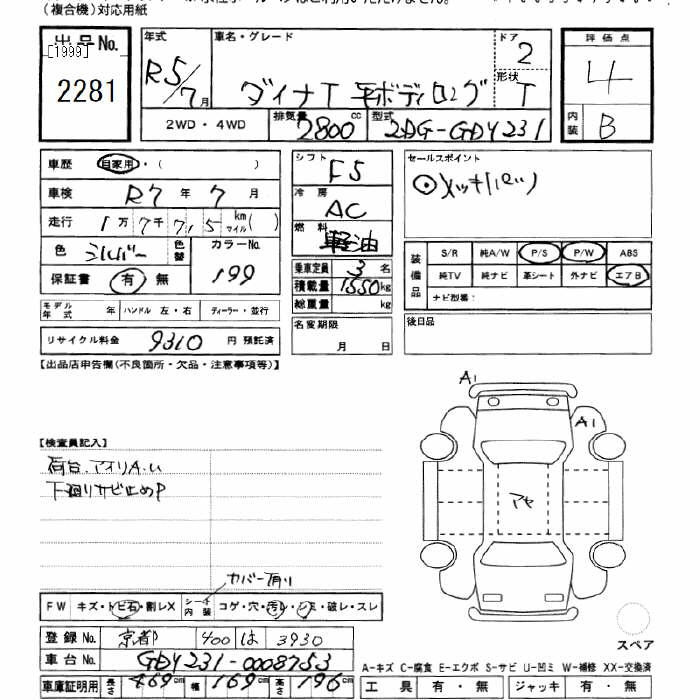 (複合機)対応用紙
出品No.
[1999]
2281
年式
R5/7月
車名・グレード
ダイナT 平ボディロング
ドア
2
形状
T
評価点
4
内装
B
2WD・4WD
排気量
2800cc
型式
2DG-GDY231
車歴
自家用・( )
車検
R7年7月
走行
1万7千7 1 5 km マイル( )
色
シルバー
色替
カラーNo.
199
保証書
有・無
シフト
F5
冷房
AC
燃料
軽油
乗車定員 3名
積載量 1550kg
総重量 kg
セールスポイント
装備品
S/R 純A/W P/S P/W ABS
純TV 純ナビ 革シート 外ナビ エアB
ナビ型番:
モデル年式 年 ハンドル 左・右 ディーラー・並行
リサイクル料金 9310 円 預託済
名変期限
月 日
後日品
【出品店申告欄(不良箇所・欠品・注意事項等)】
【検査員記入】
荷台、アオリA.U
下廻りサビ止めP
カバー有り
A1
A1
アヤ
FW キズ・トビ石・割レX
シート内装 コゲ・穴・汚レ・シミ・破レ・スレ
登録No. 京都 400 は 3930
車台No. GDY231-0008753
車庫証明用 長さ 469cm 幅 169cm 高さ 196cm
スペア
A-キズ C-腐食 E-エクボ S-サビ U-凹ミ W-補修 XX-交換済
工具 有・無 ジャッキ 有・無